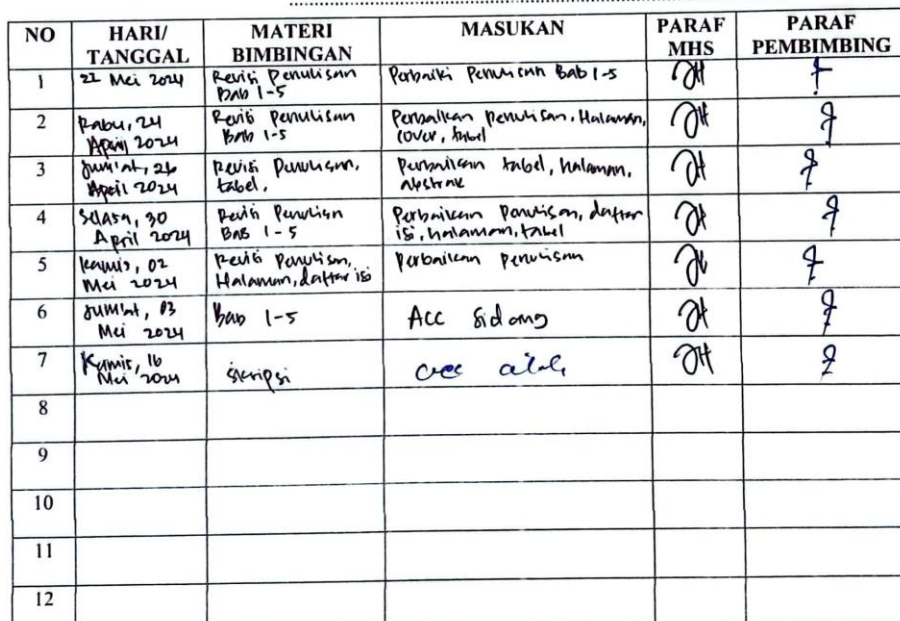 NO HARI/ TANGGAL MATERI BIMBINGAN MASUKAN PARAF MHS PARAF PEMBIMBING
1 22 Mei 2024 Revisi Penulisan Bab 1-5 Perbaiki Penulisan Bab 1-5
2 Rabu, 24 April 2024 Revisi Penulisan Bab 1-5 Perbaikan Penulisan, Halaman, cover, tabel
3 Jum'at, 26 April 2024 Revisi Penulisan, tabel, Perbaikan tabel, halaman, abstrak
4 Selasa, 30 April 2024 Revisi Penulisan Bab 1-5 Perbaikan Penulisan, daftar isi, halaman, tabel
5 Kamis, 02 Mei 2024 Revisi Penulisan, Halaman, daftar isi Perbaikan Penulisan
6 Jum'at, 03 Mei 2024 Bab 1-5 Acc Sidang
7 Kamis, 16 Mei 2024 skripsi acc
8
9
10
11
12